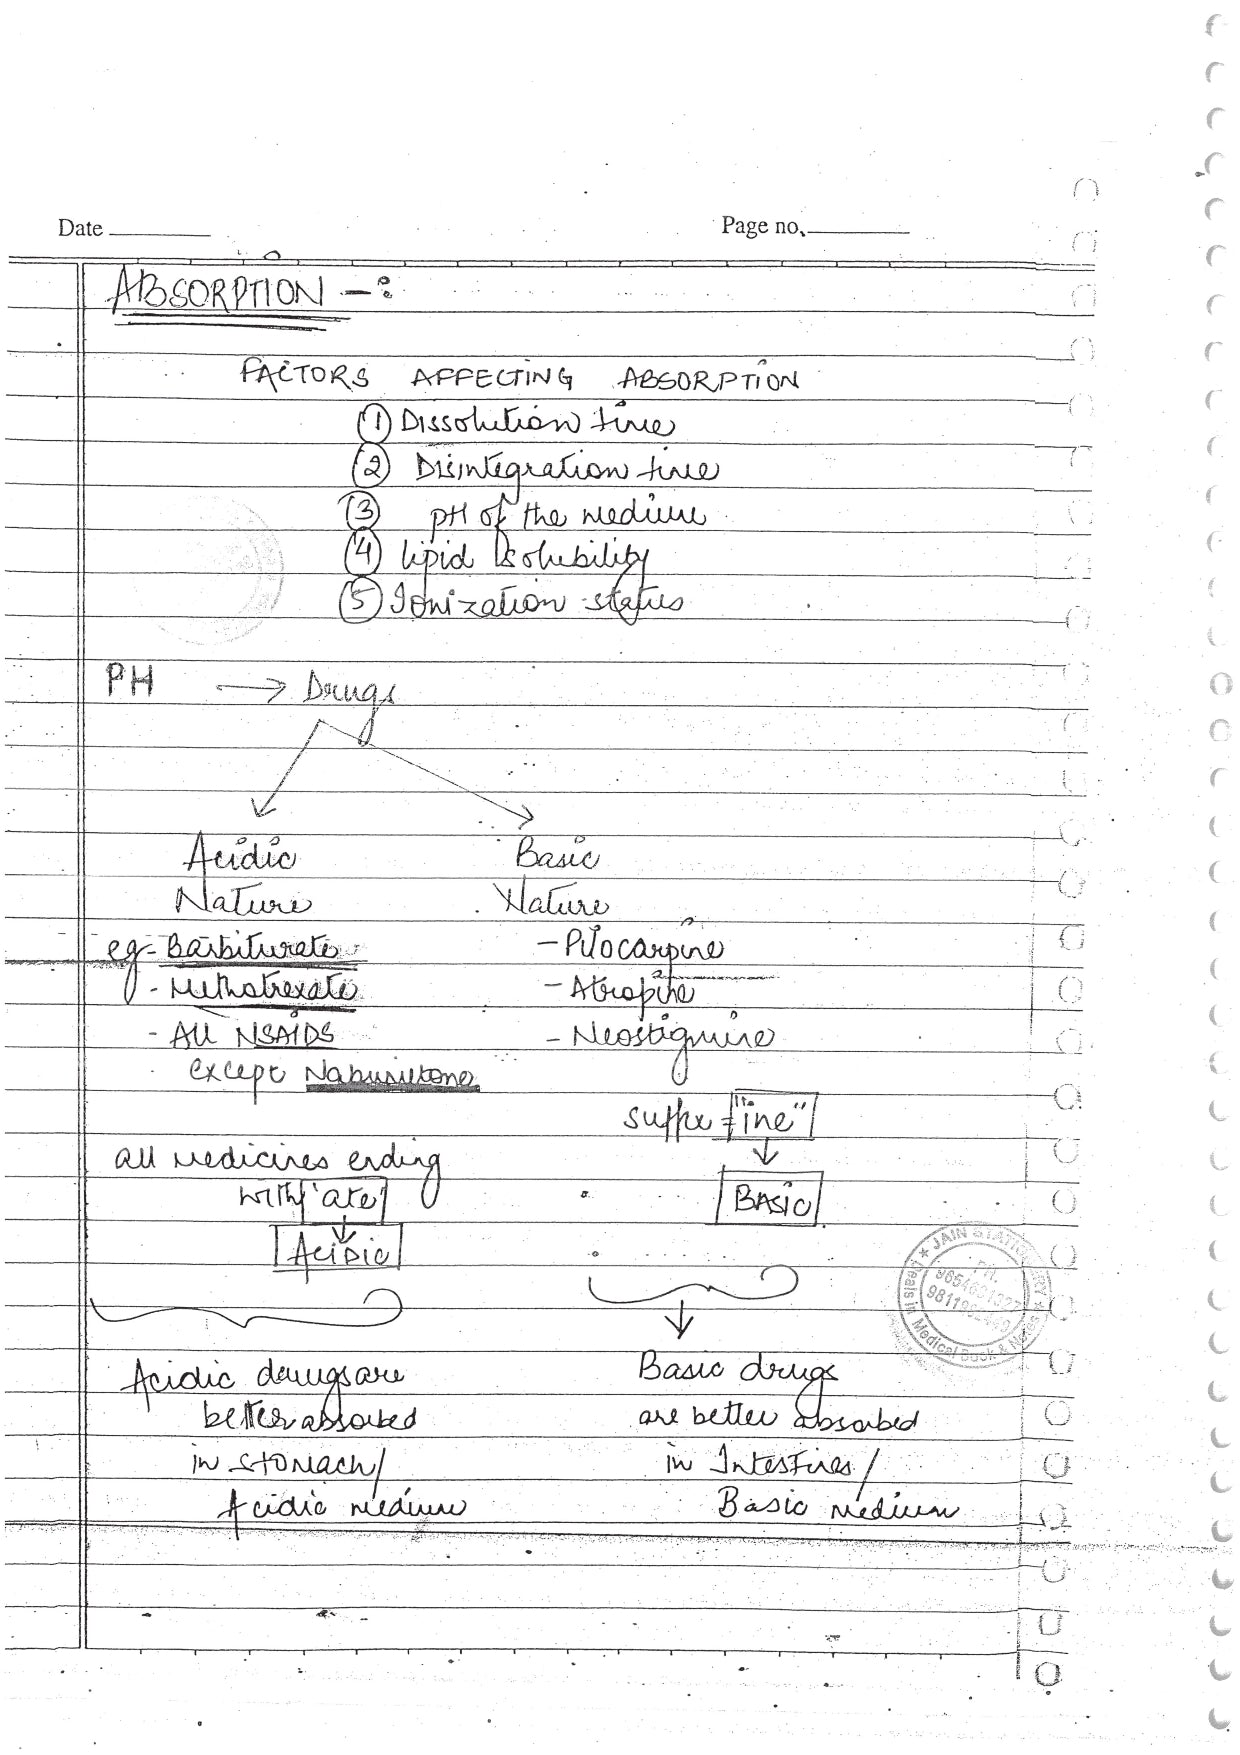 Date
Page no.
ABSORPTION -:
FACTORS AFFECTING ABSORPTION
① Dissolution time
② Disintegration time
③ pH of the medium
④ lipid solubility
⑤ Ionization status
PH → Drugs
Acidic Nature
eg - Barbiturate
- Methotrexate
- All NSAIDS
except Nabumetone
all medicines ending
with 'ate'
ACiDiC
Acidic drugs are
better absorbed
in stomach/
Acidic medium
Basic Nature
- Pilocarpine
- Atropine
- Neostigmine
suffix = "ine"
BASiC
Basic drugs
are better absorbed
in Intestines/
Basic medium
★ JAIN STATIONERY ★
PH.
Deals in Medical Book & Notes